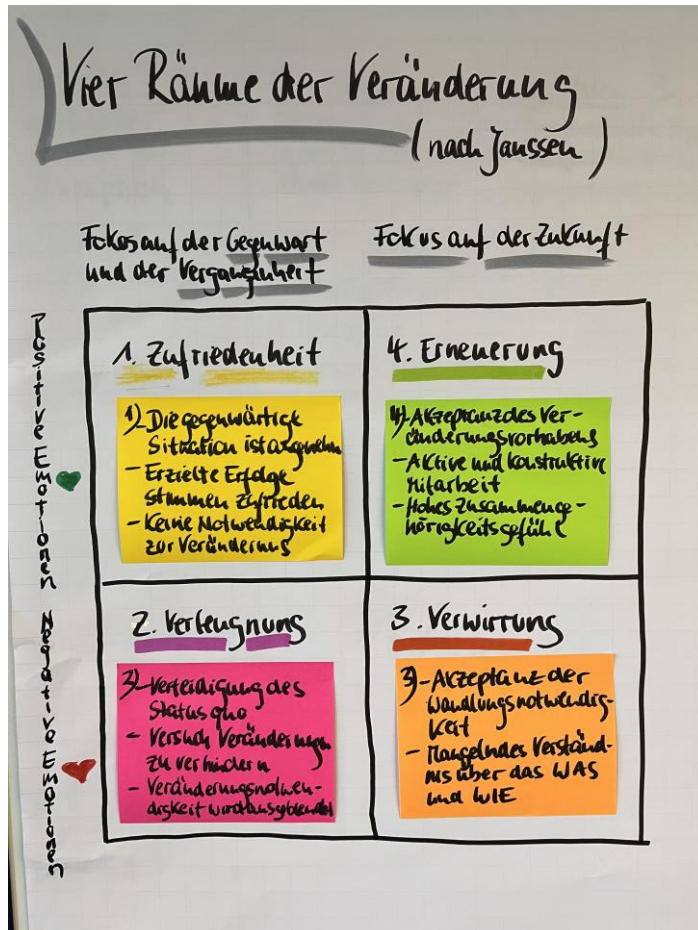 Vier Räume der Veränderung
(nach Janssen)
Fokus auf der Gegenwart
und der Vergangenheit
Fokus auf der Zukunft
Positive Emotionen
Negative Emotionen
1. Zufriedenheit
1) - Die gegenwärtige
Situation ist angenehm
- Erzielte Erfolge
stimmen zufrieden
- Keine Notwendigkeit
zur Veränderung
4. Erneuerung
4) - Akzeptanz des Ver-
änderungsvorhabens
- Aktive und konstruktive
Mitarbeit
- Hohes Zusammenge-
hörigkeitsgefühl
2. Verleugnung
3) - Verteidigung des
Status quo
- Versuch Veränderungen
zu verhindern
- Veränderungsnotwen-
digkeit wird ausgeblendet
3. Verwirrung
3) - Akzeptanz der
Wandlungsnotwendig-
keit
- Mangelndes Verständ-
nis über das WAS
und WIE